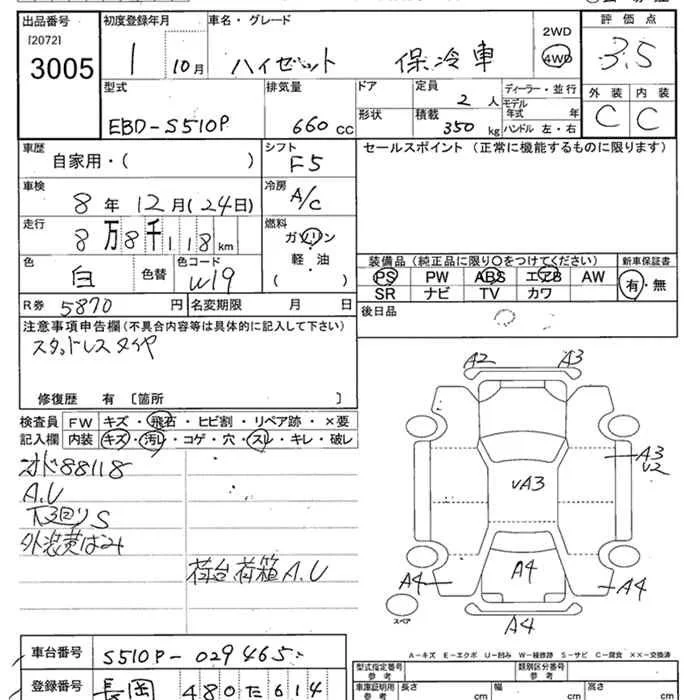 出品番号 初度登録年月 車名・グレード 2WD 評価点
[2072] 3005 1 10月 ハイゼット 保冷車 4WD 3.5
型式 排気量 ドア 定員 2人 ディーラー・並行 外装 内装
EBD-S510P 660cc 形状 積載 350kg モデル年式 年 ハンドル 左・右 C C
車歴 自家用・( ) シフト F5 セールスポイント (正常に機能するものに限ります)
車検 8年 12月(24日) 冷房 A/C
走行 8万8千118km 燃料 ガソリン 軽・油 ( )
色 白 色替 色コード W19
装備品 (純正品に限り○をつけてください) 新車保証書
PS PW ABS エアB AW 有・無
SR ナビ TV カワ
R券 5870円 名変期限 月 日 後日品
注意事項申告欄 (不具合内容等は具体的に記入して下さい)
スタッドレスタイヤ
修復歴 有 [箇所 ]
検査員 FW キズ・飛石・ヒビ割・リペア跡・×要
記入欄 内装 キズ・汚レ・コゲ・穴・スレ・キレ・破レ
オド88118
A.U
下回りS
外装黄ばみ
荷台荷箱A.U
A2 A3
A3
U2
VA3
A4 A4 A4
A4
スペア
A-キズ E-エクボ U-凹み W-補修跡 S-サビ C-腐食 ××-交換済
車台番号 S510P-029465
型式指定番号 参考 類別区分番号 参考
登録番号 長岡 480 614
車庫証明用 参考 長さ cm 幅 cm 高さ cm